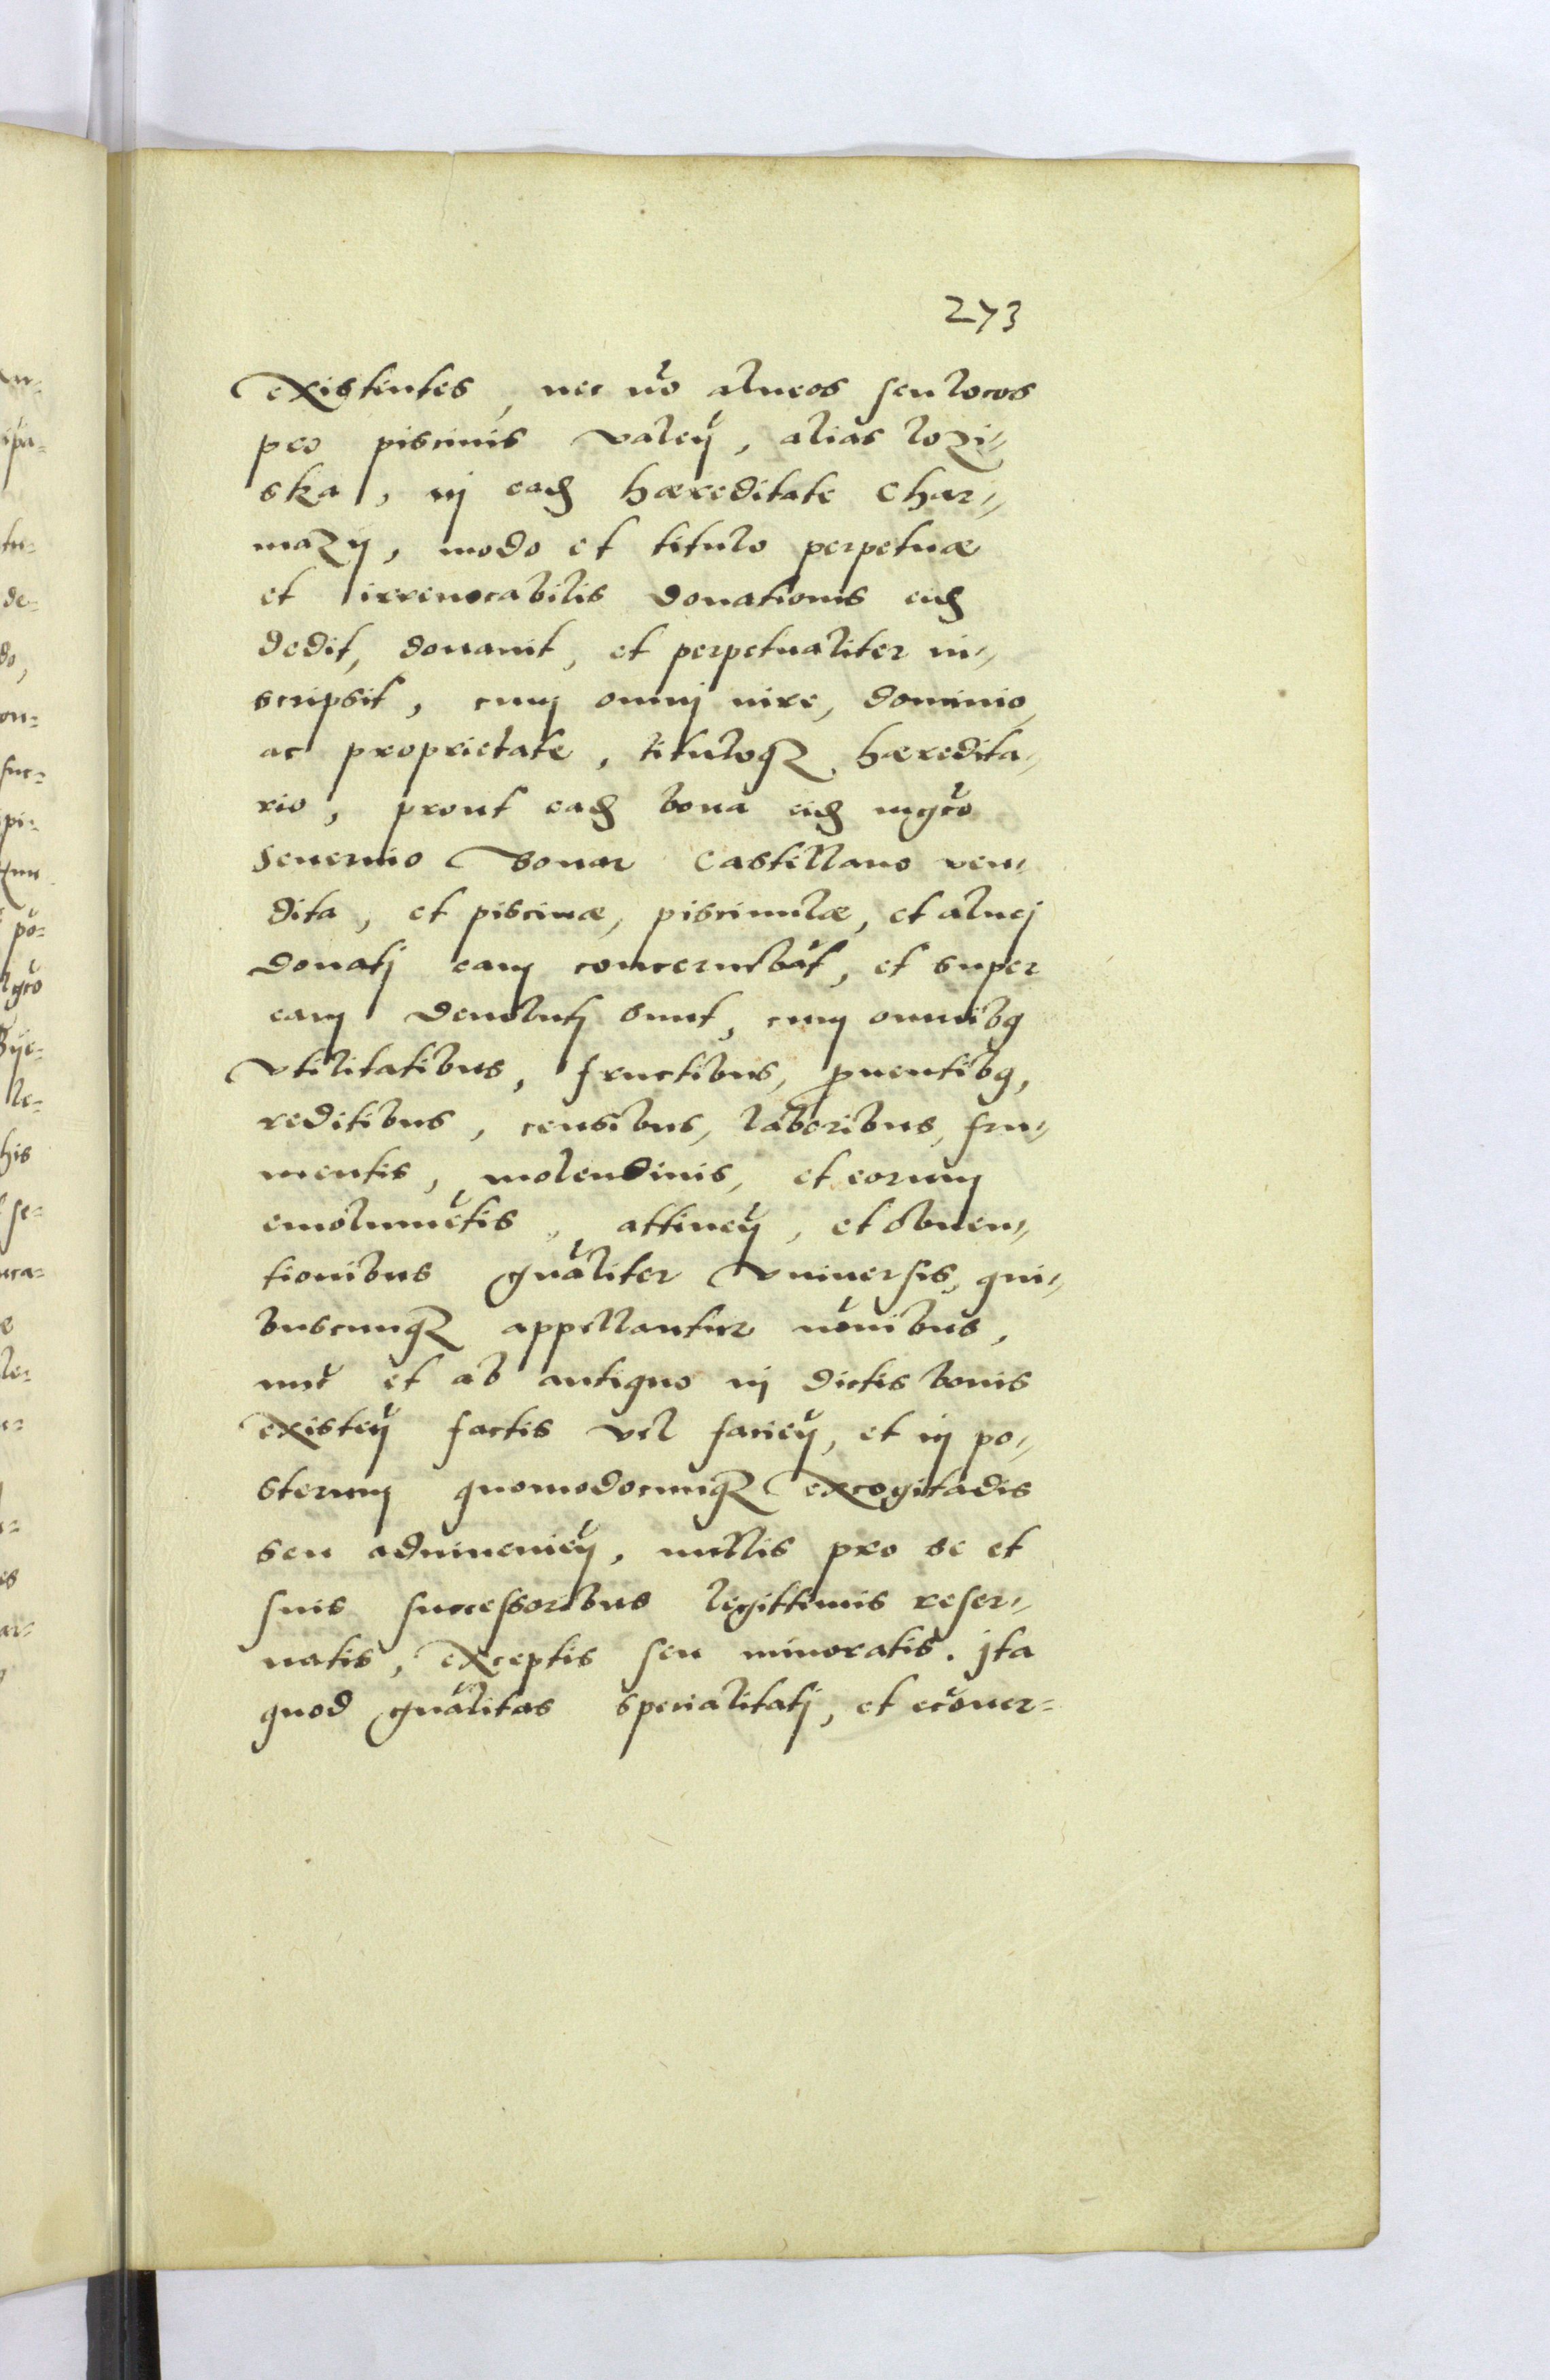 273
existentes, nec nō alueos seu locos
pro piscinis valeñ, alias lozi-
ska, in eadē hæreditate Char-
mazÿ, modo et titulo perpetuæ
et irreuocabilis donationis eidē
dedit, donauit, et perpetualiter in-
scripsit, cum omni iure, dominio,
ac proprietate, tituloqȝ hæredita-
rio, prout eadē bona eidē mgcō
Seuerino Bonar Castellano ven-
dita, et piscinæ, piscinulæ, et aluej
donatj eam concernebāt, et super
eam deuolutj sunt, cum omnibq
vtilitatibus, fructibus, ꝓuentibq,
reditibus, censibus, laboribus, fru-
mentis, molendinis, et eorum
emolumētis, attineñ, et obuen-
tionibus gnāliter vniuersis, qui-
buscunqȝ appellantur nōnibus,
nūc et ab antiquo in dictis bonis
existeñ factis vel facieñ, et in po-
sterum quomodocunqȝ excogitādis
seu adinuenieñ, nullis pro se et
suis successoribus legittimis reser-
uatis, exceptis seu minoratis. Jta
quod gnālitas specialitatj, et ecōuer-